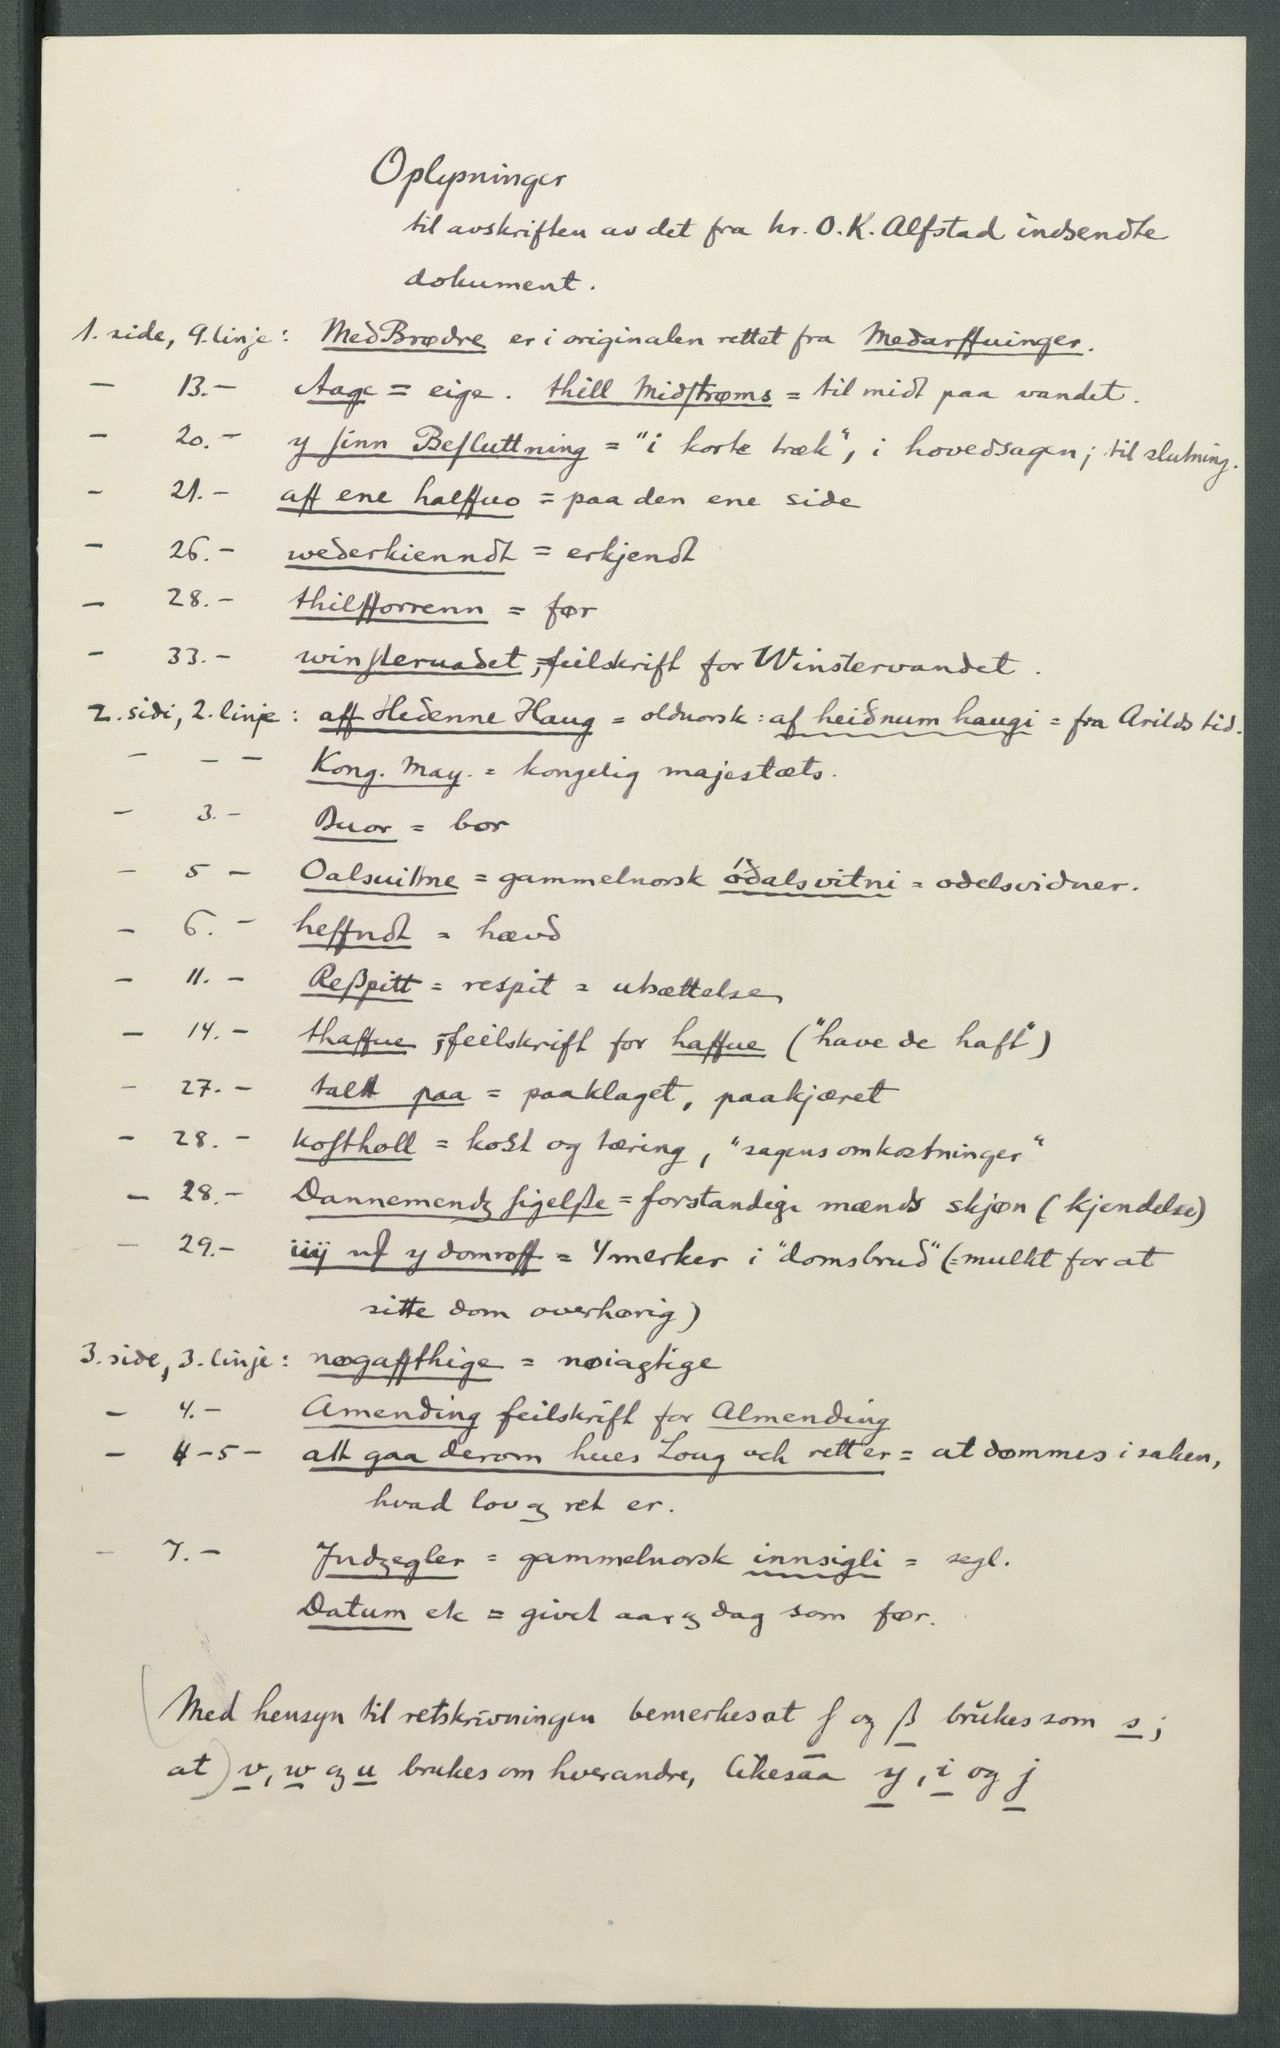 Oplysninger
til avskriften av det fra hr. O. K. Alfstad indsendte
dokument.
1. side, 9. linje: MedBrødre er i originalen rettet fra Medarffuinger.
- 13. - Aage = eige. thill Midſtrøms = til midt paa vandet.
- 20. - y ſinn Beſluttning = "i korte træk", i hovedsagen; til slutning.
- 21. - aff ene halffuo = paa den ene side
- 26. - wederkienndt = erkjendt
- 28. - thilfforrenn = før
- 33. - winſteruadet, feilskrift for Winstervandet.
2. side, 2. linje: aff Hedenne Haug = oldnorsk: af heiðnum haugi = fra Arilds tid.
- - - Kong. May. = kongelig majestæts.
- 3. - Buor = bor
- 5 - Oalsuittne = gammelnorsk óðalsvitni = odelsvidner.
- 6. - heffndt = hævd
- 11. - Reßpitt = respit = utsættelse
- 14. - thaffue, feilskrift for haffue ("have de haft")
- 27. - taltt paa = paaklaget, paakjæret
- 28. - koſtholl = kost og tæring, "sagens omkostninger"
- 28. - Dannemendz ſigelße = forstandige mænds skjøn (kjendelse)
- 29. - iiij y domroff = 4 merker i "domsbrud" (= mulkt for at
sitte dom overhørig)
3. side, 3. linje: nøgaffthige = nøiagtige
- 4. - Amending feilskrift for Almending
- 4-5 - att gaa derom hues Loug och rett er = at dømmes i saken,
hvad lov og ret er.
- 7. - Indzegler = gammelnorsk innsigli = segl.
Datum etc = givet aar og dag som før.
(Med hensyn til retskrivningen bemerkes at ſ og ß brukes som s;
at) v, w og u brukes om hverandre, likesaa y, i og j